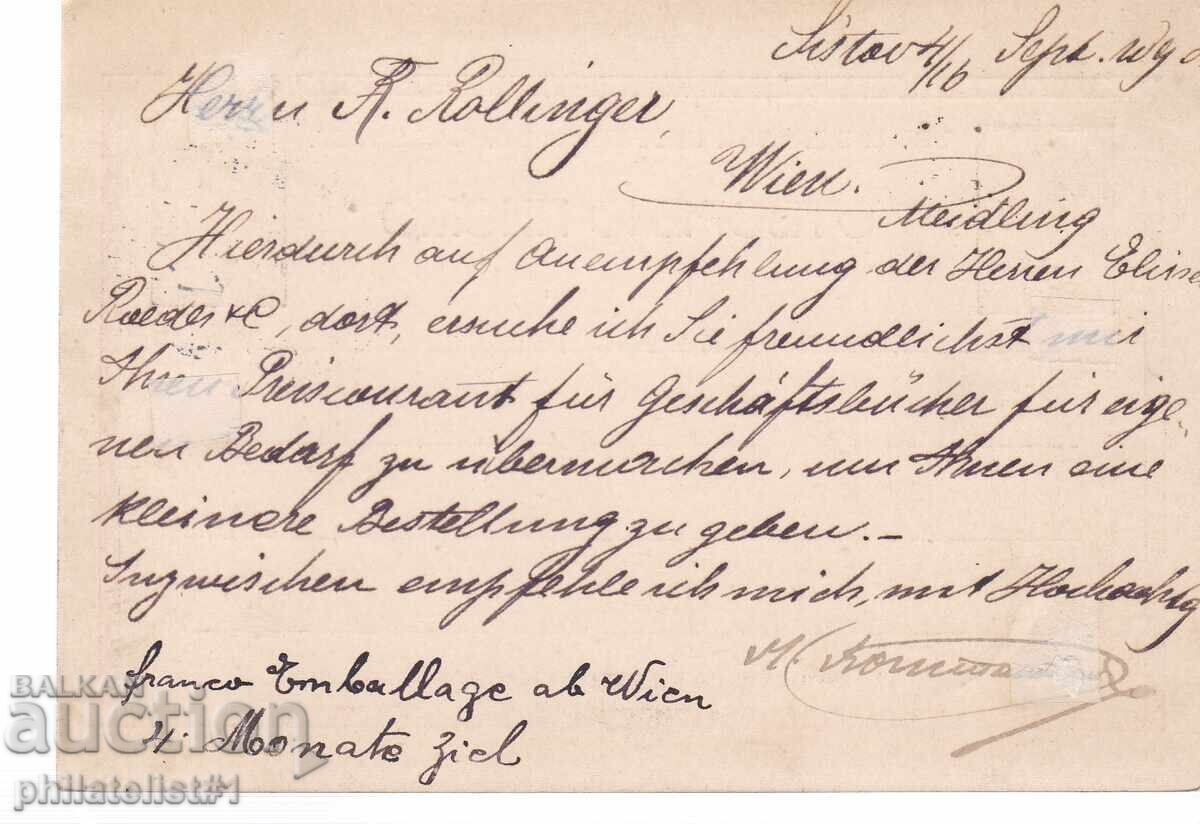 Sistov 4/16 Sept.
Herrn A. Rollinger,
Wien.
Meidling
Hierdurch auf Anempfehlung der Herren
Roeder & C, dort, ersuche ich Sie freundlichst mir
Ihren Preiscourant für Geschäftsbücher für eige
nen Bedarf zu übermachen, um Ihnen eine
kleinere Bestellung zu geben. –
Inzwischen empfehle ich mich, mit Hochachtg
M.
franco Emballage ab Wien
4 Monate Ziel
BALKAN
auction
philatelist#1